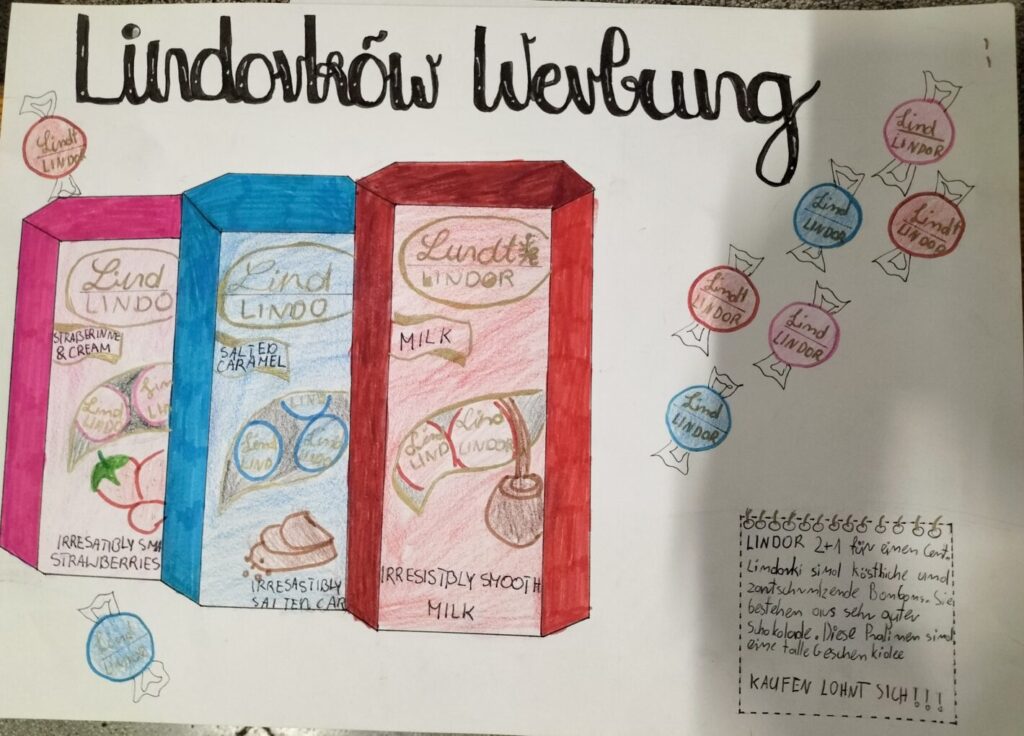 Lindorków Werbung
Lindt
LINDOR
Lind
LINDOR
Lind
LINDOR
Lindt
LINDOR
Lindt
LINDOR
Lind
LINDOR
Lind
LINDOR
Lind
LINDO
STRAßERINNE
& CREAM
Lind
LINDO
IRRESATIBLY SM
STRAWBERRIES
Lind
LINDO
SALTED
CARAMEL
LIND
Lind
LIND
Lind
LINDO
IRRESASTIBLY
SALTED CAR
Lundt
LINDOR
MILK
Lind
LIND
Lind
LINDOR
IRRESISTBLY SMOOTH
MILK
Lind
LINDOR
LINDOR 2+1 für einen Cent.
Lindorki sind köstliche und
zartschmlzende Bonbons. Sie
bestehen aus sehr guter
Schokolade. Diese Pralinen sind
eine tolle Geschenkidee
KAUFEN LOHNT SICH!!!